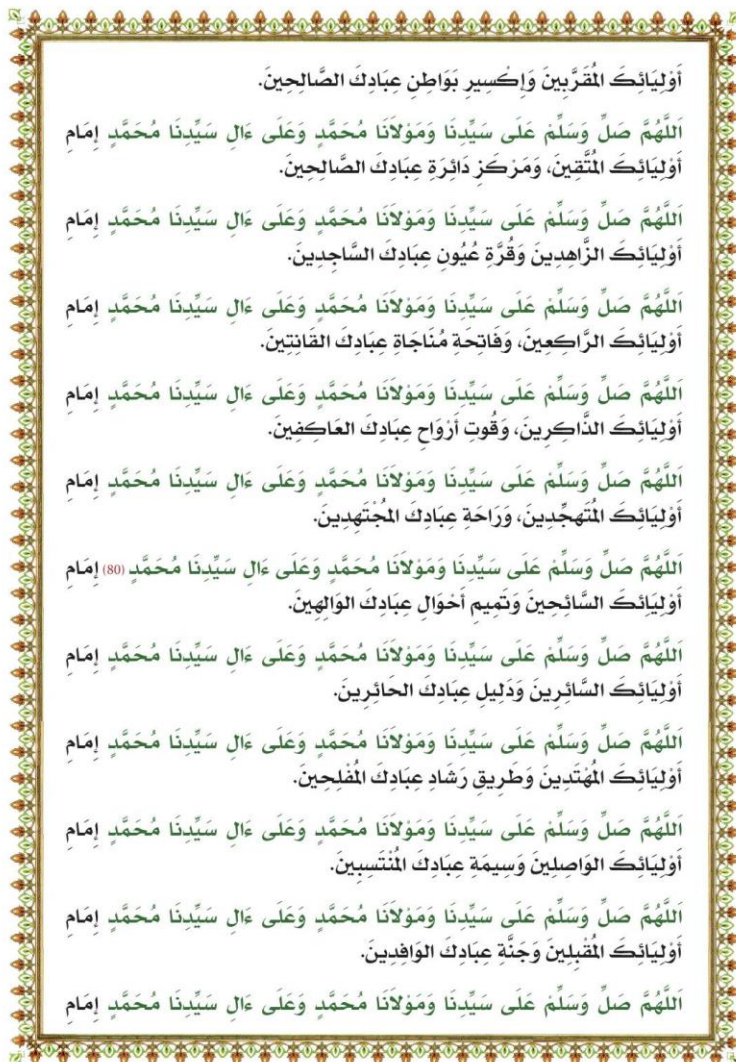 أَوْلِيَائِكَ الْمُقَرَّبِينَ وَإِكْسِيرِ بَوَاطِنِ عِبَادِكَ الصَّالِحِينَ.
اَللَّهُمَّ صَلِّ وَسَلِّمْ عَلَى سَيِّدِنَا وَمَوْلَانَا مُحَمَّدٍ وَعَلَى ءَالِ سَيِّدِنَا مُحَمَّدٍ إِمَامِ
أَوْلِيَائِكَ الْمُتَّقِينَ، وَمَرْكَزِ دَائِرَةِ عِبَادِكَ الصَّالِحِينَ.
اَللَّهُمَّ صَلِّ وَسَلِّمْ عَلَى سَيِّدِنَا وَمَوْلَانَا مُحَمَّدٍ وَعَلَى ءَالِ سَيِّدِنَا مُحَمَّدٍ إِمَامِ
أَوْلِيَائِكَ الزَّاهِدِينَ وَقُرَّةِ عُيُونِ عِبَادِكَ السَّاجِدِينَ.
اَللَّهُمَّ صَلِّ وَسَلِّمْ عَلَى سَيِّدِنَا وَمَوْلَانَا مُحَمَّدٍ وَعَلَى ءَالِ سَيِّدِنَا مُحَمَّدٍ إِمَامِ
أَوْلِيَائِكَ الرَّاكِعِينَ، وَفَاتِحَةِ مُنَاجَاةِ عِبَادِكَ القَانِتِينَ.
اَللَّهُمَّ صَلِّ وَسَلِّمْ عَلَى سَيِّدِنَا وَمَوْلَانَا مُحَمَّدٍ وَعَلَى ءَالِ سَيِّدِنَا مُحَمَّدٍ إِمَامِ
أَوْلِيَائِكَ الذَّاكِرِينَ، وَقُوتِ أَرْوَاحِ عِبَادِكَ العَاكِفِينَ.
اَللَّهُمَّ صَلِّ وَسَلِّمْ عَلَى سَيِّدِنَا وَمَوْلَانَا مُحَمَّدٍ وَعَلَى ءَالِ سَيِّدِنَا مُحَمَّدٍ إِمَامِ
أَوْلِيَائِكَ الْمُتَهجِّدِينَ، وَرَاحَةِ عِبَادِكَ الْمُجْتَهِدِينَ.
اَللَّهُمَّ صَلِّ وَسَلِّمْ عَلَى سَيِّدِنَا وَمَوْلَانَا مُحَمَّدٍ وَعَلَى ءَالِ سَيِّدِنَا مُحَمَّدٍ (80) إِمَامِ
أَوْلِيَائِكَ السَّائِحِينَ وَتَمِيمِ أَحْوَالِ عِبَادِكَ الوَالِهِينَ.
اَللَّهُمَّ صَلِّ وَسَلِّمْ عَلَى سَيِّدِنَا وَمَوْلَانَا مُحَمَّدٍ وَعَلَى ءَالِ سَيِّدِنَا مُحَمَّدٍ إِمَامِ
أَوْلِيَائِكَ السَّائِرِينَ وَدَلِيلِ عِبَادِكَ الحَائِرِينَ.
اَللَّهُمَّ صَلِّ وَسَلِّمْ عَلَى سَيِّدِنَا وَمَوْلَانَا مُحَمَّدٍ وَعَلَى ءَالِ سَيِّدِنَا مُحَمَّدٍ إِمَامِ
أَوْلِيَائِكَ الْمُهْتَدِينَ وَطَرِيقِ رَشَادِ عِبَادِكَ الْمُفْلِحِينَ.
اَللَّهُمَّ صَلِّ وَسَلِّمْ عَلَى سَيِّدِنَا وَمَوْلَانَا مُحَمَّدٍ وَعَلَى ءَالِ سَيِّدِنَا مُحَمَّدٍ إِمَامِ
أَوْلِيَائِكَ الوَاصِلِينَ وَسِيمَةِ عِبَادِكَ الْمُنْتَسِبِينَ.
اَللَّهُمَّ صَلِّ وَسَلِّمْ عَلَى سَيِّدِنَا وَمَوْلَانَا مُحَمَّدٍ وَعَلَى ءَالِ سَيِّدِنَا مُحَمَّدٍ إِمَامِ
أَوْلِيَائِكَ الْمُقْبِلِينَ وَجَنَّةِ عِبَادِكَ الوَافِدِينَ.
اَللَّهُمَّ صَلِّ وَسَلِّمْ عَلَى سَيِّدِنَا وَمَوْلَانَا مُحَمَّدٍ وَعَلَى ءَالِ سَيِّدِنَا مُحَمَّدٍ إِمَامِ